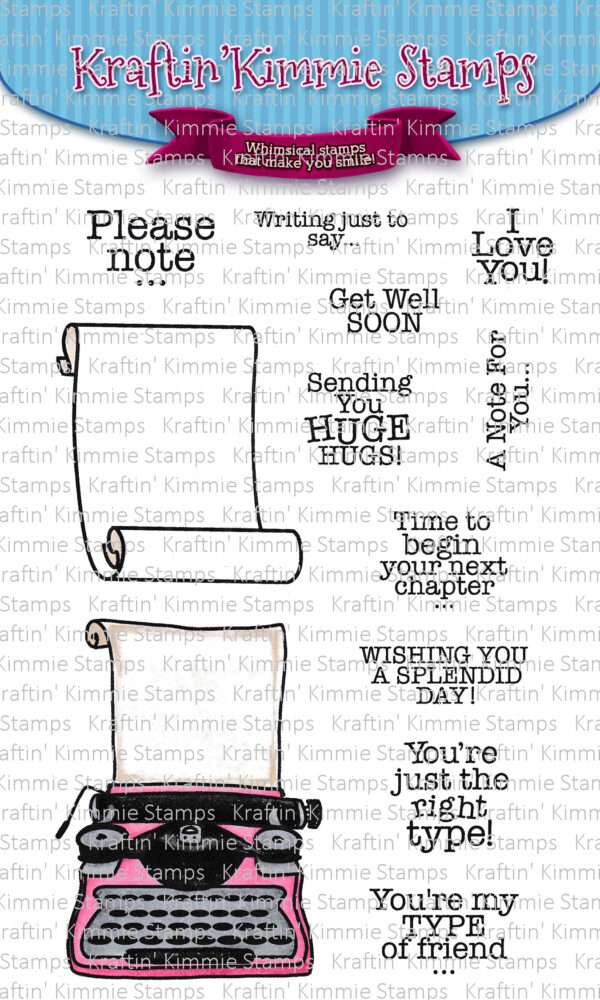 Kraftin'Kimmie Stamps
Whimsical stamps
that make you smile!
Please
note
...
Writing just to
say...
I
Love
You!
Get Well
SOON
Sending
You
HUGE
HUGS!
A Note For
You...
Time to
begin
your next
chapter
...
WISHING YOU
A SPLENDID
DAY!
You're
just the
right
type!
You're my
TYPE
of friend
...
Kraftin' Kimmie Stamps